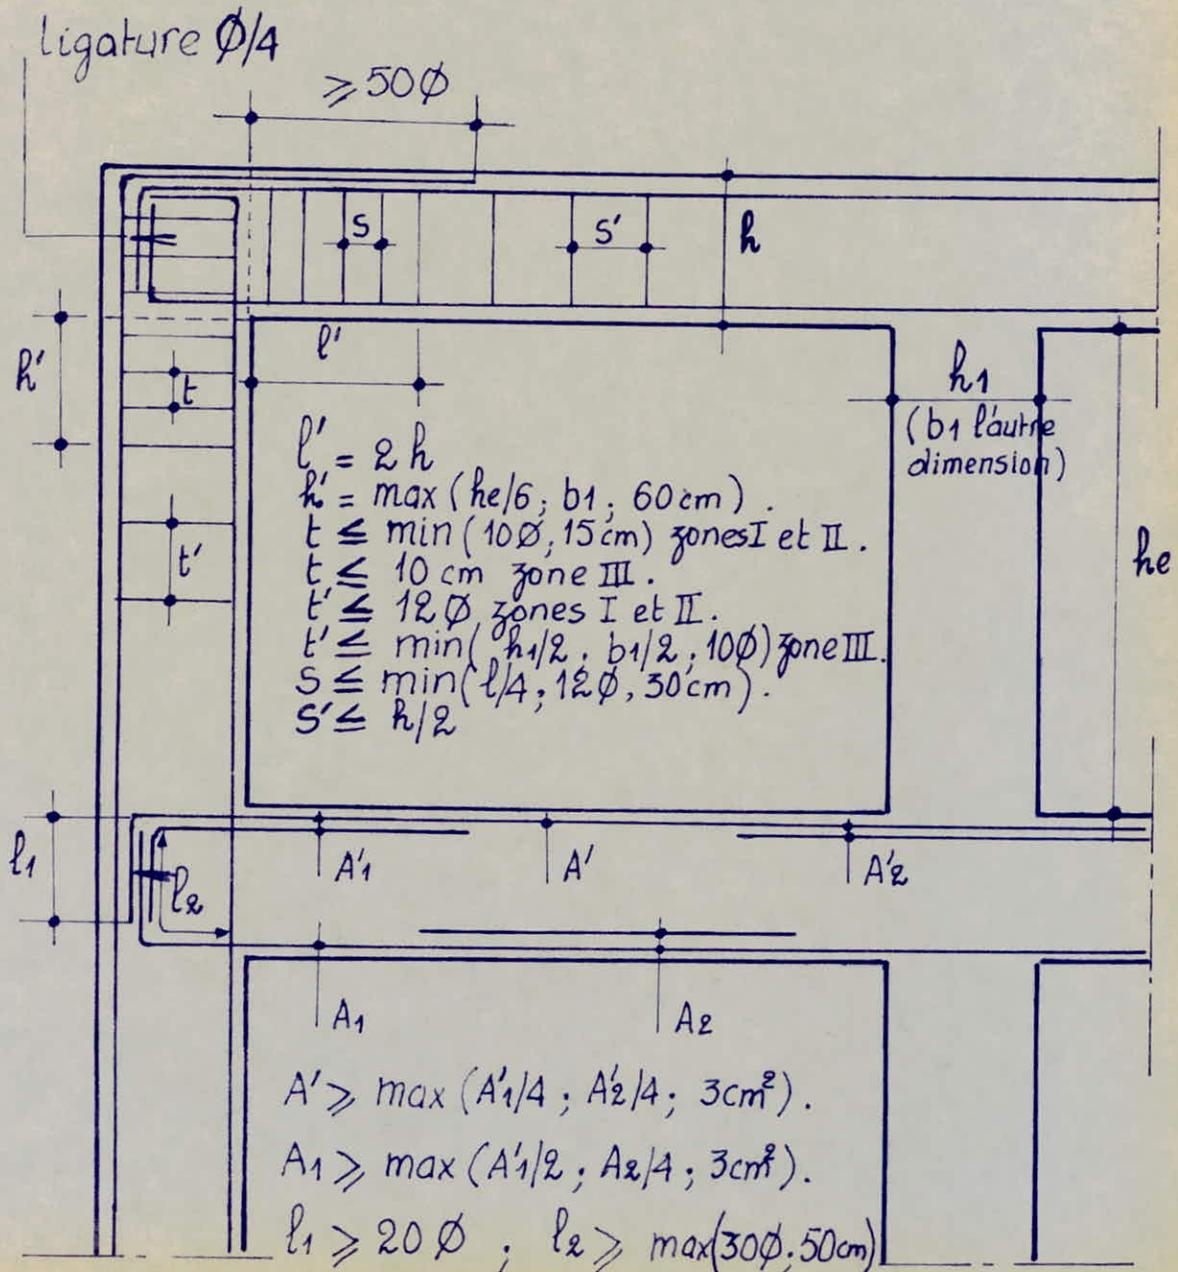 ligature Ø/4
⩾50Ø
s
s'
h
h'
t
l'
h1
(b1 l'autre
dimension)
l' = 2h
h' = max (he/6; b1; 60cm).
t ≤ min (10Ø, 15cm) zones I et II.
t ≤ 10 cm zone III.
t' ≤ 12Ø, zones I et II.
t' ≤ min( h1/2, b1/2, 10Ø) zone III.
s ≤ min(l/4; 12Ø, 30cm).
s' ≤ h/2
t'
he
l1
l2
A'1
A'
A'2
A1
A2
A' ⩾ max (A'1/4; A'2/4; 3cm²).
A1 ⩾ max (A'1/2; A2/4; 3cm²).
l1 ⩾ 20 Ø ; l2 ⩾ max(30Ø; 50cm)